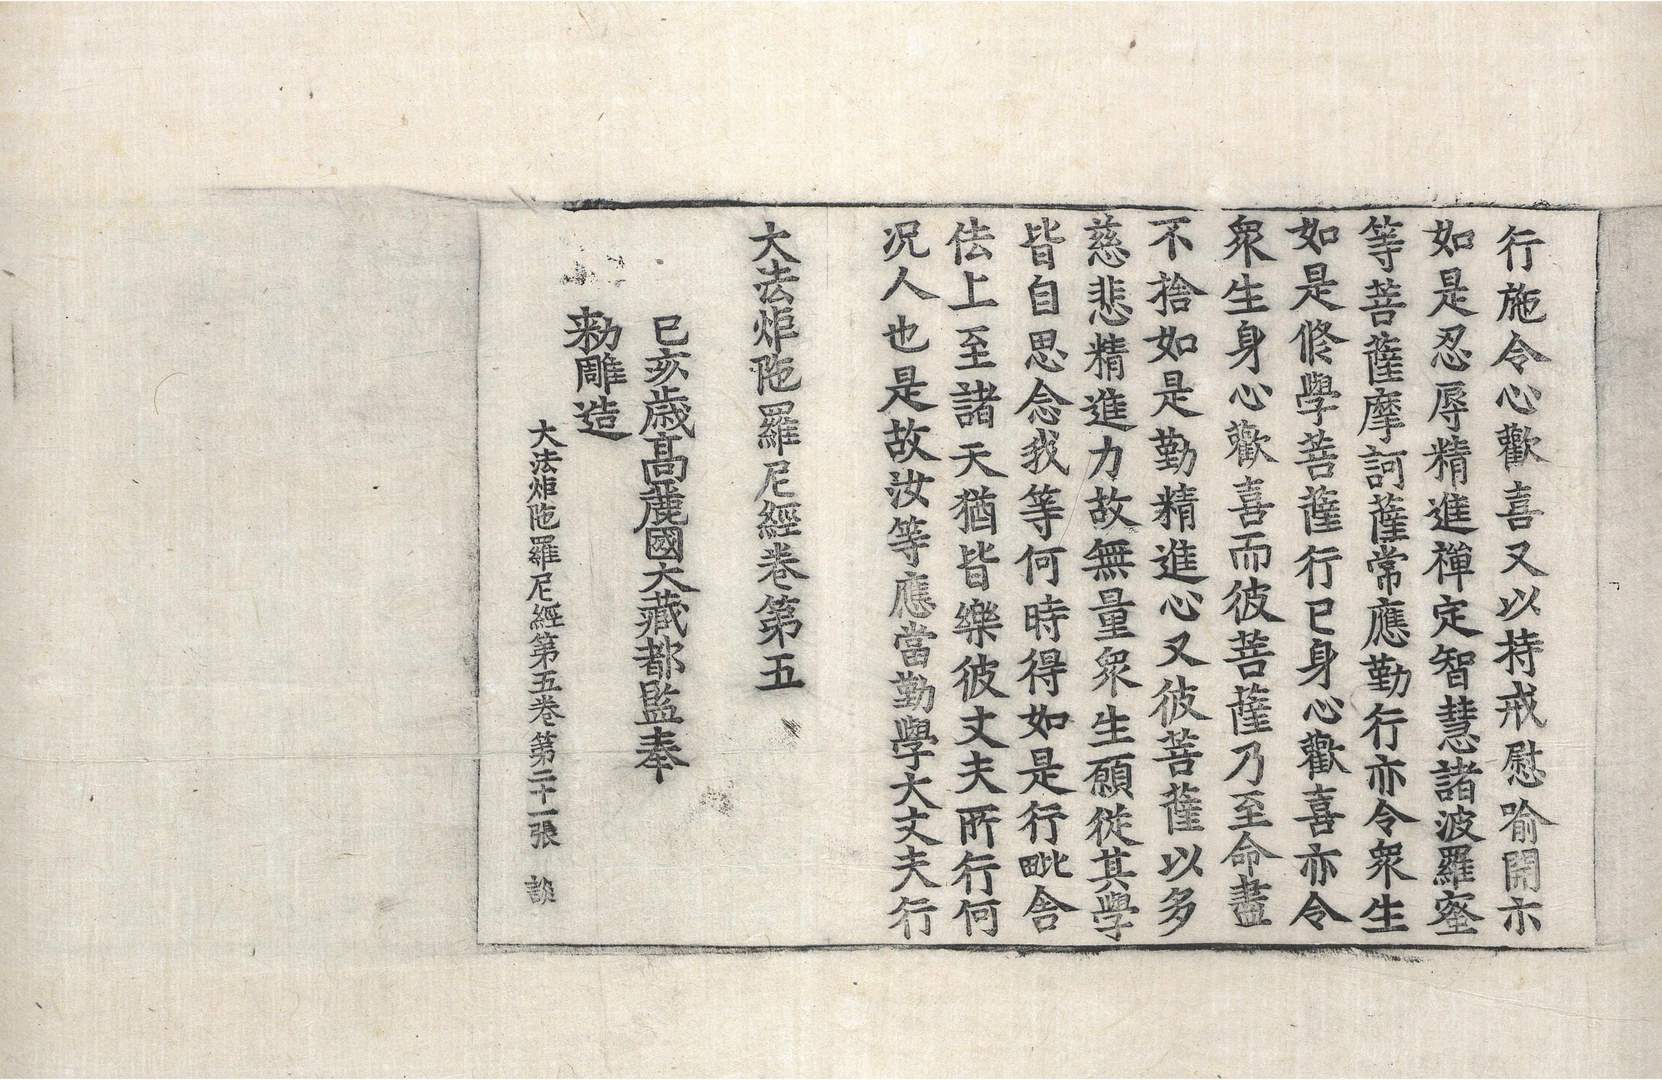 行施令心歡喜又以持戒慰喻開示
如是忍辱精進禪定智慧諸波羅蜜
等菩薩摩訶薩常應勤行亦令衆生
如是修學菩薩行已身心歡喜亦令
衆生身心歡喜而彼菩薩乃至命盡
不捨如是勤精進心又彼菩薩以多
慈悲精進力故無量衆生願從其學
皆自思念我等何時得如是行毗舍
佉上至諸天猶皆樂彼丈夫所行何
況人也是故汝等應當勤學大丈夫行
大法炬陁羅尼經卷第五
己亥歲高麗國大藏都監奉
勑雕造
大法炬陁羅尼經第五卷第二十一張 談